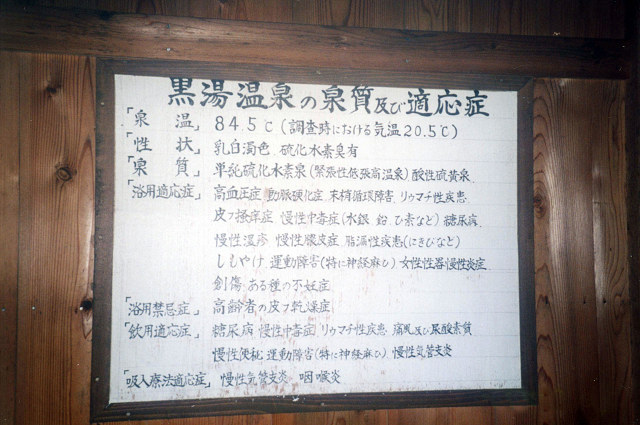 黒湯温泉の泉質及び適応症
「泉温」 84.5℃(調査時における気温20.5℃)
「性状」 乳白濁色 硫化水素臭有
「泉質」 単純硫化水素泉(緊張性低張高温泉)酸性硫黄泉
「浴用適応症」 高血圧症 動脈硬化症 末梢循環障害 リウマチ性疾患
皮フ掻痒症 慢性中毒症(水銀 鉛 ひ素など)糖尿病
慢性湿疹 慢性膿皮症 脂漏性疾患(にきびなど)
しもやけ 運動障害(特に神経麻ひ)女性性器慢性炎症
創傷 ある種の不妊症
「浴用禁忌症」 高齢者の皮フ乾燥症
「飲用適応症」 糖尿病 慢性中毒症 リウマチ性疾患 痛風及び尿酸素質
慢性便秘 運動障害(特に神経麻ひ) 慢性気管支炎
「吸入療法適応症」 慢性気管支炎 咽喉炎